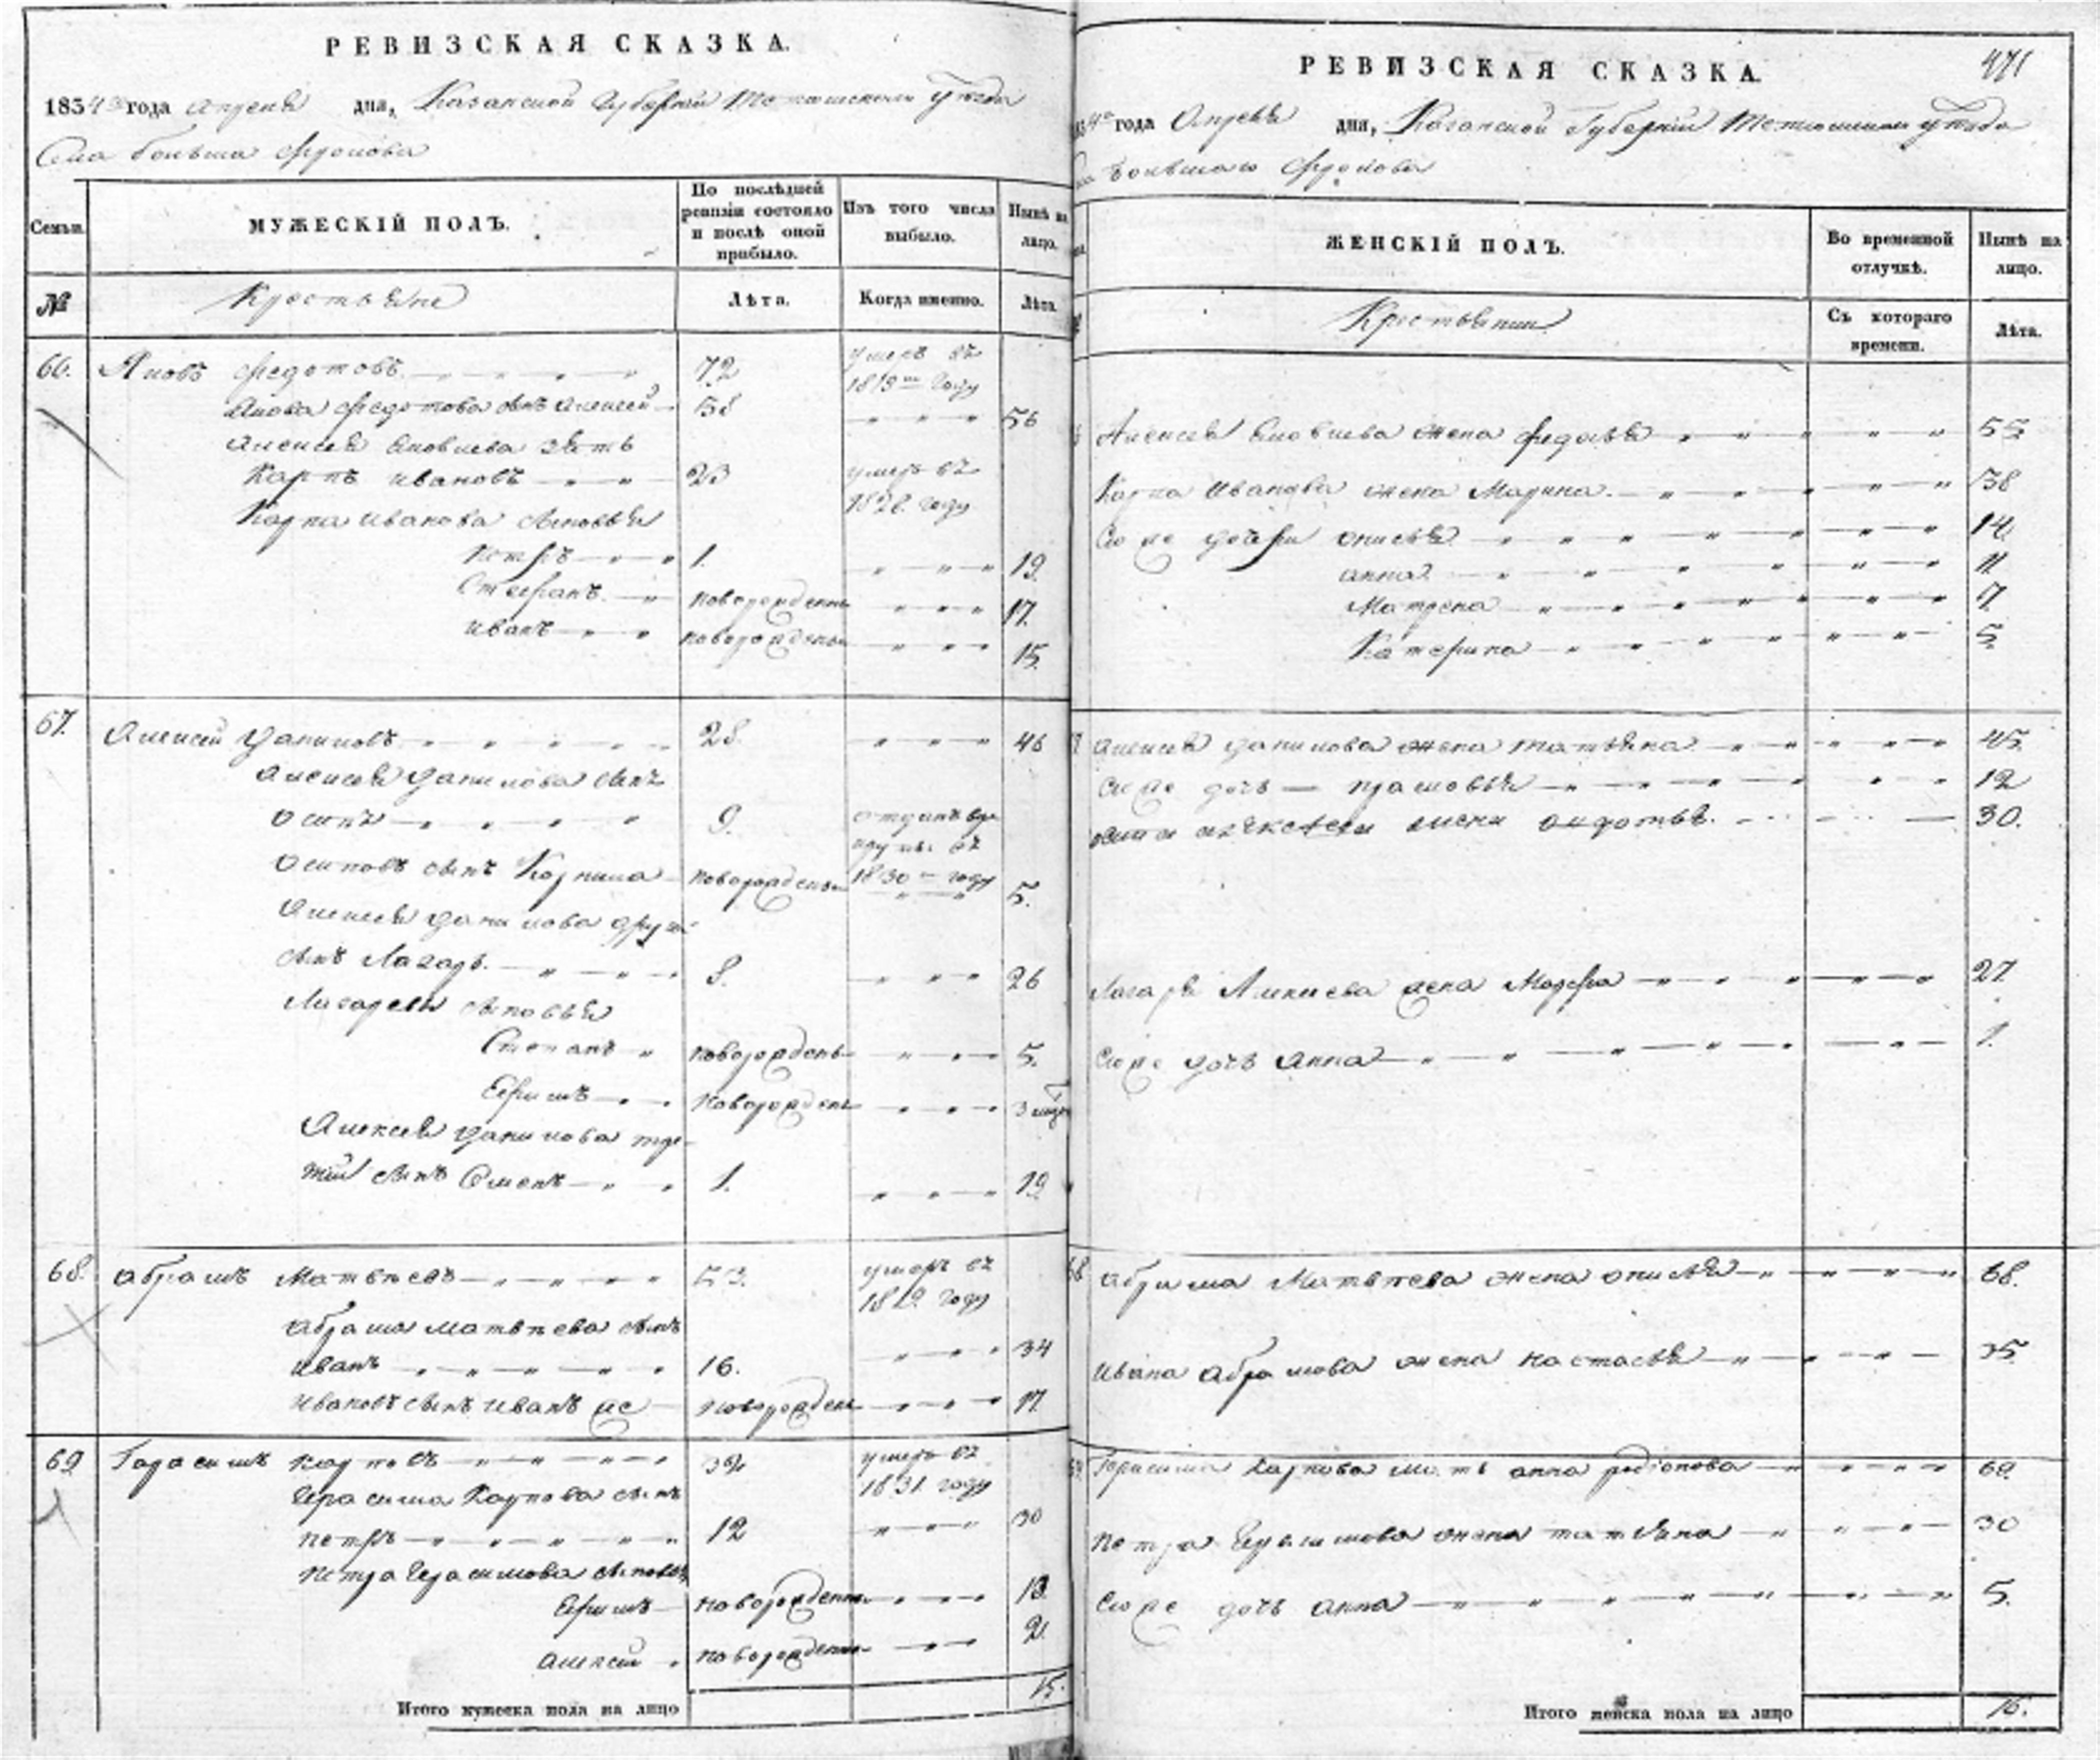 РЕВИЗСКАЯ СКАЗКА.
1834 года апреля дня, Казанской Губернии Тетюшскаго уезда
Села больша Фролова
Семьи. МУЖЕСКІЙ ПОЛЪ. По послѣдней ревизіи состояло и послѣ оной прибыло. Изъ того числа выбыло. Нынѣ на лицо.
№ Крестьяне Лѣта. Когда именно. Лѣта.
66. Яковъ Федотовъ 72 умеръ въ 1819 году
Якова Федотова сынъ Алексей 38 56
Алексея Яковлева зять
Карпъ Ивановъ 23 умеръ въ 1828 году
Карпа Иванова сыновья
Петръ 1. 19.
Стефанъ новорожденн 17.
Иванъ новорожденн 15.
67. Алексей Даниловъ 28. 46
Алексея Данилова сынъ
Осипъ 9. отданъ въ рекруты въ 1830 году
Осиповъ сынъ новорожденн 5.
Алексея Данилова другой
сынъ Лазарь 8. 26
Лазаревы сыновья
Степанъ новорожденъ 5.
Ефимъ новорожденъ 3
Алексея Данилова тре-
тий сынъ Семенъ 1. 19
68. Абрамъ Матвѣевъ 53. умеръ въ году
Абрама Матвѣева сынъ
Иванъ 16. 34
Ивановъ сынъ Иванъ же новорожден 17.
69 Гарасимъ Карповъ 32 умеръ въ 1831 году
Герасима Карпова сынъ
Петръ 12 30
Петра Герасимова сыновья
Ефимъ новорожденн 10.
Алексей новорожденн 2.
Итого мужеска пола на лицо 15.
РЕВИЗСКАЯ СКАЗКА. 471
года Апреля дня, Казанской Губернии Тетюшскаго уезда
большаго Фролова
ЖЕНСКІЙ ПОЛЪ. Во временной отлучкѣ. Нынѣ на лицо.
Крестьянки Съ котораго времени. Лѣта.
Алексея Яковлева жена Федосья 55
Карпа Иванова жена Марина 38
Ево же дочери Анисья 14.
Анна 11
Матрена 7.
Катерина 5
Алексея Данилова жена Татьяна 45.
Ево же дочь Прасковья 12
Осипа Алексеева жена Авдотья 30.
Лазаря Алексеева жена Марфа 27.
Ево же дочь Анна 1.
68 Абрама Матвѣева жена Анисья 68.
Ивана Абрамова жена Настасья 35
Герасима Карпова мать Анна Родионова 69.
Петра Герасимова жена Татьяна 30
Ево же дочь Анна 5.
Итого женска пола на лицо 16.